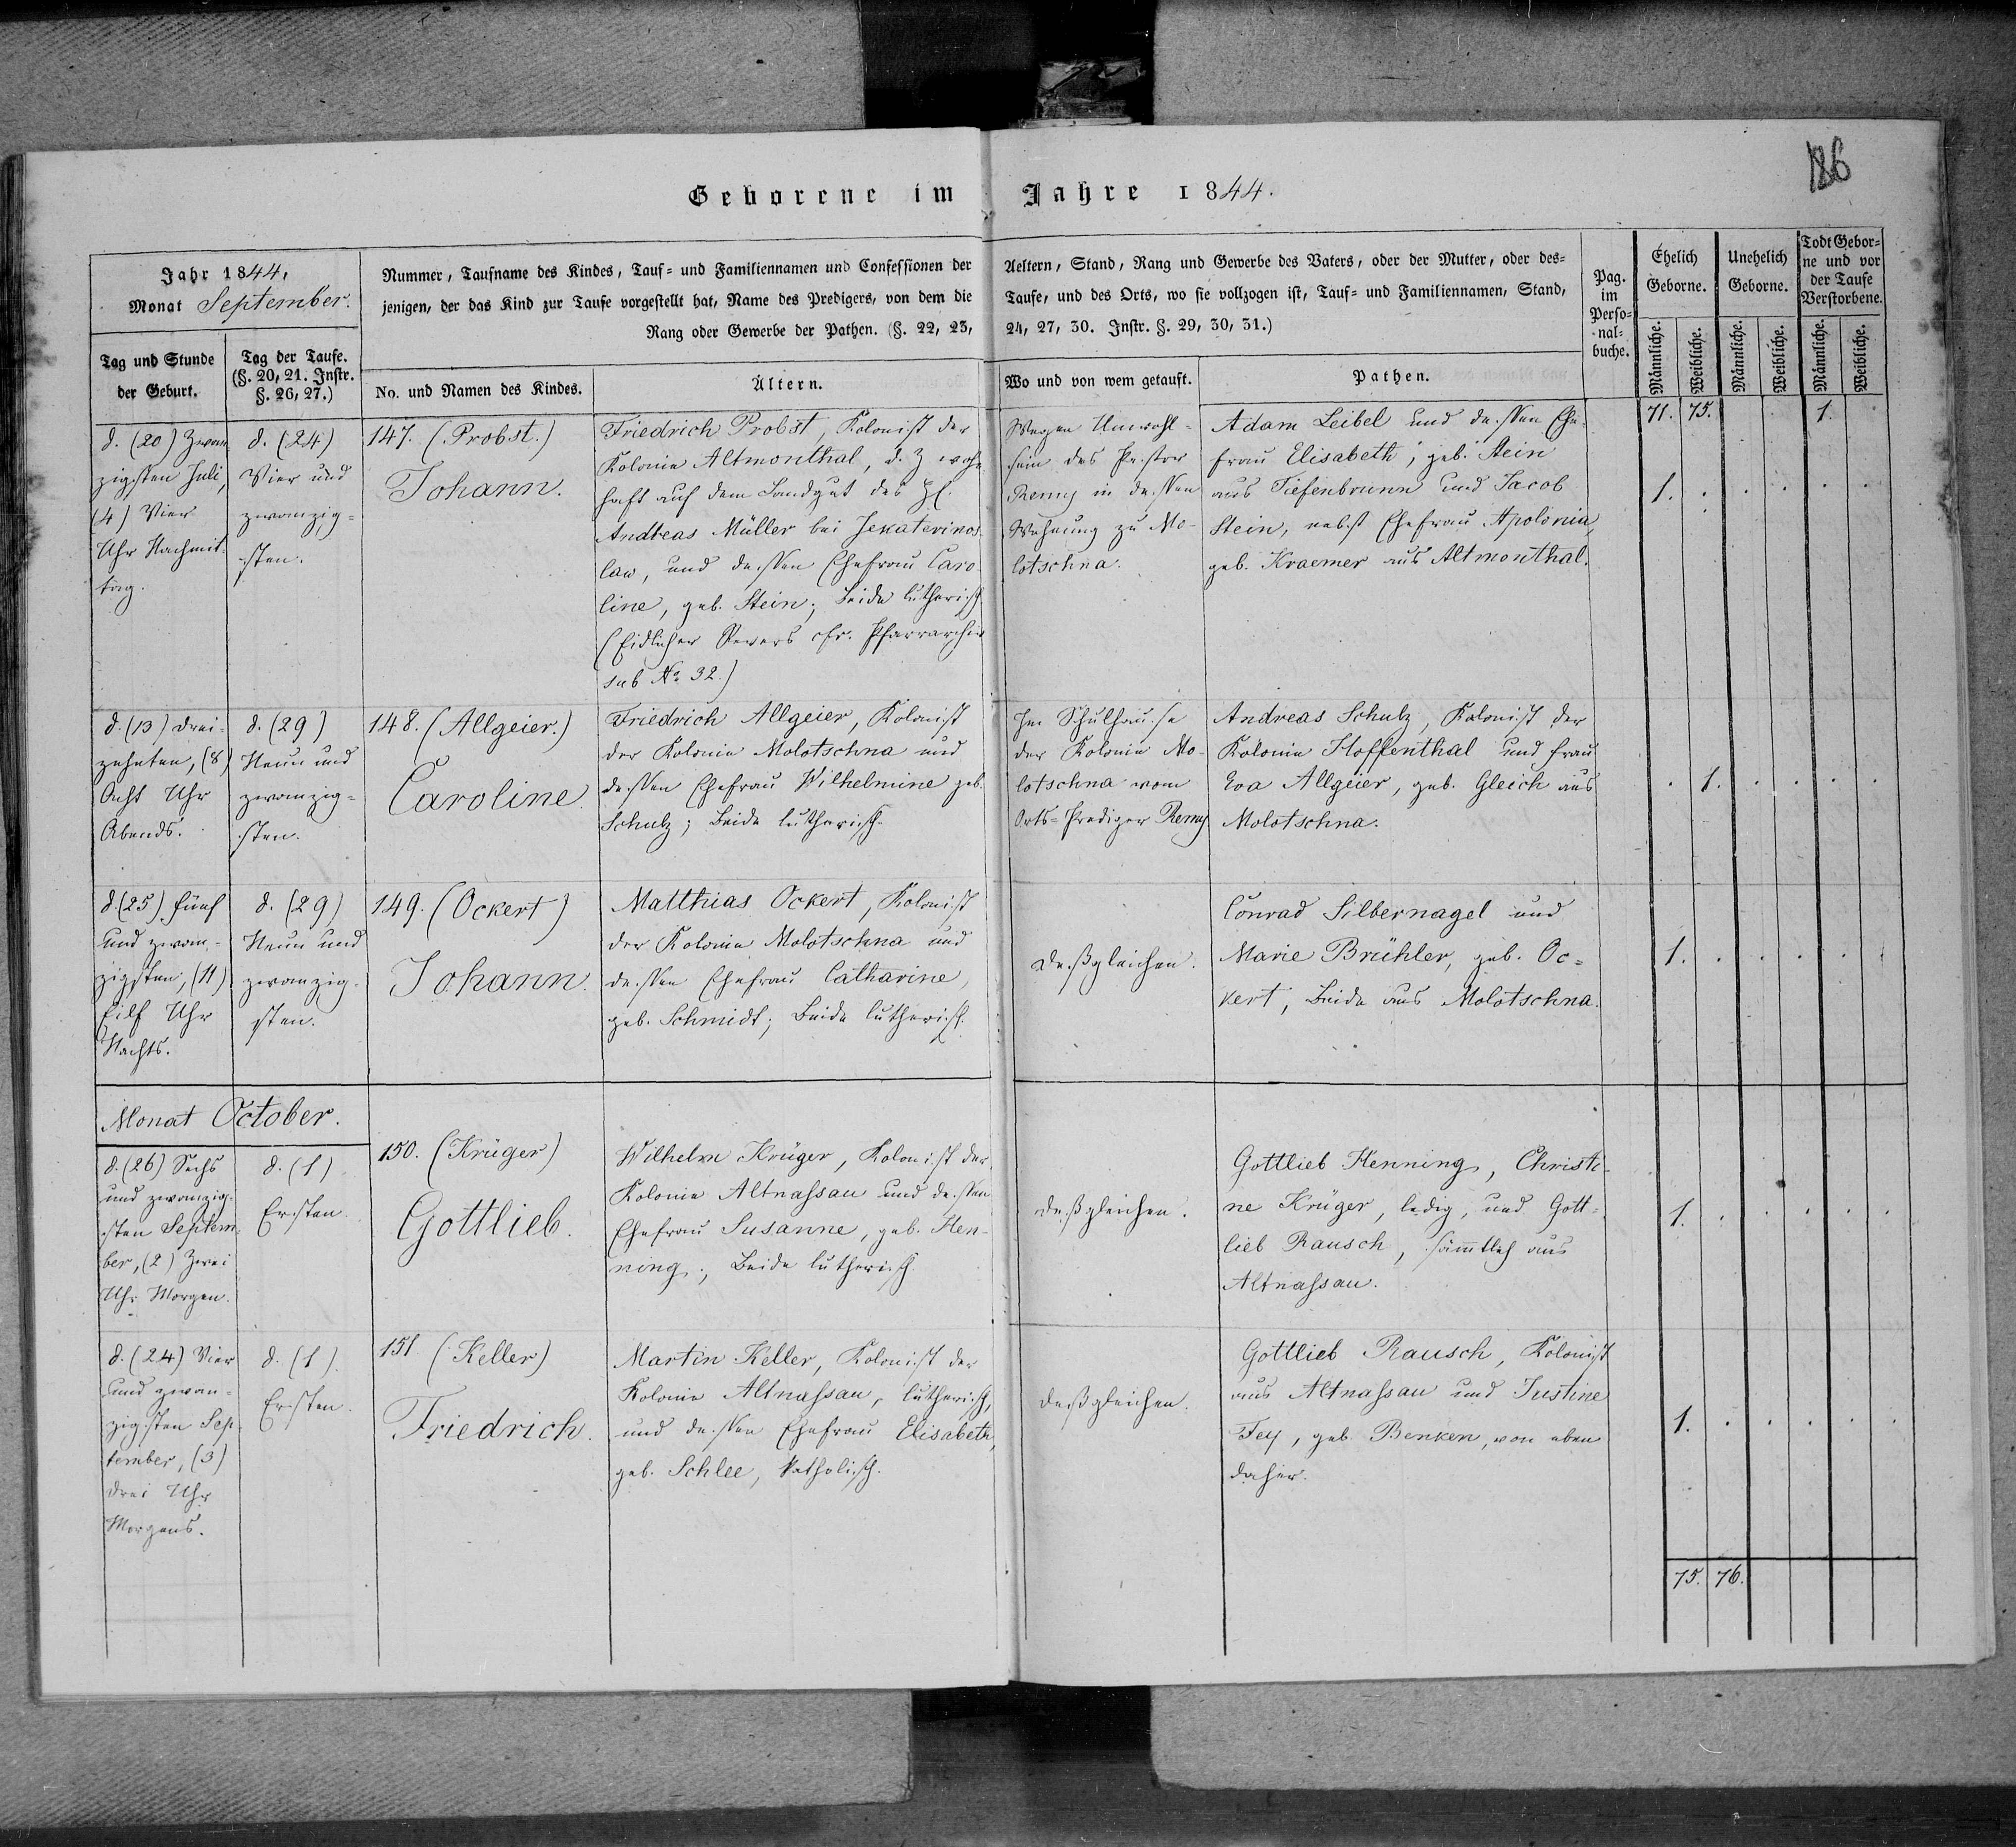 186
Geborene im Jahre 1844.
Jahr 1844,
Monat September.
Nummer, Taufname des Kindes, Tauf- und Familiennamen und Confessionen der Aeltern, Stand, Rang und Gewerbe des Vaters, oder der Mutter, oder des-
jenigen, der das Kind zur Taufe vorgestellt hat, Name des Predigers, von dem die Taufe, und des Orts, wo sie vollzogen ist, Tauf- und Familiennamen, Stand,
Rang oder Gewerbe der Pathen. (§. 22, 23, 24, 27, 30. Instr. §. 29, 30, 31.)
Pag.
im
Perso-
nal-
buche.
Ehelich
Geborne.
Unehelich
Geborne.
Todt Gebor-
ne und vor
der Taufe
Verstorbene.
Tag und Stunde
der Geburt.
Tag der Taufe.
(§. 20, 21. Instr.
§. 26, 27.)
No. und Namen des Kindes.
Ältern.
Wo und von wem getauft.
Pathen.
Männliche.
Weibliche.
Männliche.
Weibliche.
Männliche.
Weibliche.
71. 75. 1.
d. (20) Zwan
zigsten Juli,
(4) Vier
Uhr Nachmit-
tag.
d. (24)
Vier und
zwanzig-
sten.
147. (Probst.)
Johann.
Friedrich Probst, Kolonist der
Kolonie Altmonthal, d. Z. wohn
haft auf dem Landgut des H.
Andreas Müller bei Jekaterinos-
law, und dessen Ehefrau Caro-
line, geb. Stein; Beide lutherisch
(Eidlicher Revers cfr. Pfarrarchiv
sub No 32.)
Wegen Unwohl-
sein des Pastor
Remy in dessen
Wohnung zu Mo-
lotschna.
Adam Leibel und dessen Ehe-
frau Elisabeth, geb. Stein
aus Tiefenbrunn und Jacob
Stein, nebst Ehefrau Apolonia,
geb. Kraemer aus Altmonthal.
1.
d. (13) Drei-
zehnten, (8)
Acht Uhr
Abends.
d. (29)
Neun und
zwanzig-
sten.
148. (Allgeier.)
Caroline.
Friedrich Allgeier, Kolonist
der Kolonie Molotschna und
dessen Ehefrau Wilhelmine geb.
Schulz; Beide lutherisch.
Im Schulhause
der Kolonie Mo-
lotschna vom
Orts-Prediger Remy.
Andreas Schulz, Kolonist der
Kolonie Hoffenthal und Frau
Eva Allgeier, geb. Gleich aus
Molotschna.
1.
d. (25) fünf
und zwan-
zigsten, (11)
Eilf Uhr
Nachts.
d. (29)
Neun und
zwanzig-
sten.
149. (Ockert)
Johann.
Matthias Ockert, Kolonist
der Kolonie Molotschna und
dessen Ehefrau Catharine,
geb. Schmidt; Beide lutherisch.
Deßgleichen.
Conrad Silbernagel und
Marie Brühler, geb. Oc-
kert, Beide aus Molotschna.
1.
Monat October.
d. (26) Sechs
und zwanzig-
sten Septem-
ber, (2) Zwei
Uhr Morgen.
d. (1)
Ersten.
150. (Krüger)
Gottlieb.
Wilhelm Krüger, Kolonist der
Kolonie Altnaßau und dessen
Ehefrau Susanne, geb. Hen-
ning; Beide lutherisch
Deßgleichen.
Gottlieb Henning, Christi-
ne Krüger, ledig, und Gott-
lieb Rausch, sämtlich aus
Altnaßau.
1.
d. (24) Vier
und zwan-
zigsten Sep-
tember, (3)
Drei Uhr
Morgens.
d. (1).
Ersten.
151 (Keller)
Friedrich.
Martin Keller, Kolonist der
Kolonie Altnaßau, lutherisch,
und dessen Ehefrau Elisabeth,
geb. Schlee, katholisch.
Deßgleichen.
Gottlieb Rausch, Kolonist
aus Altnaßau und Justine
Fey, geb. Benken, von eben
daher.
1.
75. 76.